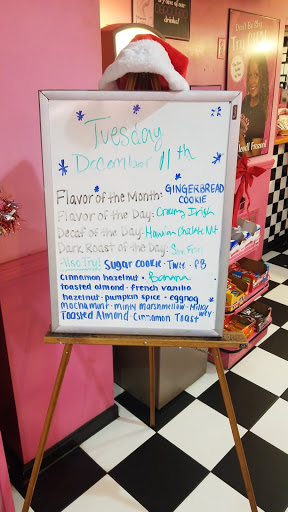 Tuesday
December 11th
Flavor of the Month: GINGERBREAD
COOKIE
Flavor of the Day: Creamy Irish
Decaf of the Day: Hawaiian Choklate Nut
Dark Roast of the Day: San Fran
Also Try! Sugar Cookie · Twix · PB
cinnamon hazelnut · Banana
toasted almond · french vanilla
hazelnut · pumpkin spice · eggnog
mochamint · minty marshmellow · Milky
way
Toasted Almond · Cinnamon Toast
drinks!